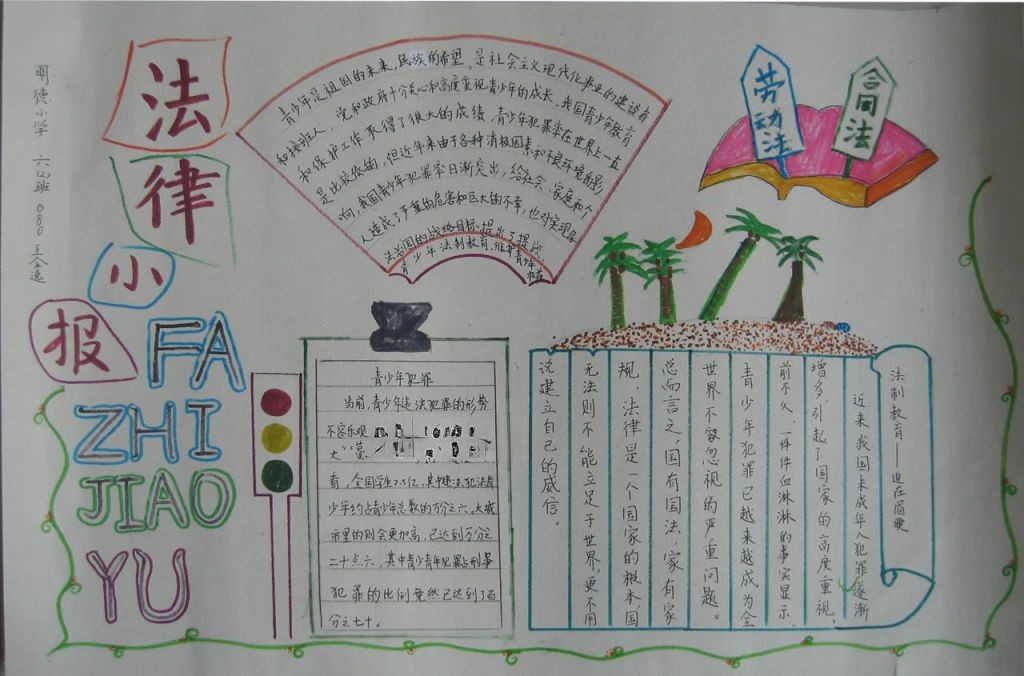 明德小学 六(2)班 080 王金逸
法
律
小
报
FA
ZHI
JIAO
YU
青少年是祖国的未来,民族的希望,是社会主义现代化事业的建设者
和接班人。党和政府十分关心和高度重视青少年的成长,我国青少年教育
和保护工作取得了很大的成绩,青少年犯罪率在世界上一直
是比较低的,但近年来由于各种消极因素和不良环境的影
响,我国青少年犯罪率日渐突出,给社会、家庭和个
人造成了严重的危害和巨大的不幸,也对实现依
法治国的战略目标提出了挑战。
青少年法制教育,维护青少年
权益
劳动法
合同法
青少年犯罪
当前,青少年违法犯罪的形势
不容乐观
看,全国学生2.5亿,其中违法犯法青
少年约占青少年总数的万分之六,大城
市里的则会更加高,已达到万分之
二十点六,其中青少年犯罪占刑事
犯罪的比例竟然已达到了百
分之七十。
法制教育——迫在眉睫
近来我国未成年人犯罪逐渐
增多,引起了国家的高度重视,
前不久,一件件血淋淋的事实显示,
青少年犯罪已越来越成为全
世界不容忽视的严重问题。
总而言之,国有国法,家有家
规,法律是一个国家的根本,国
无法则不能立足于世界,更不用
说建立自己的威信。